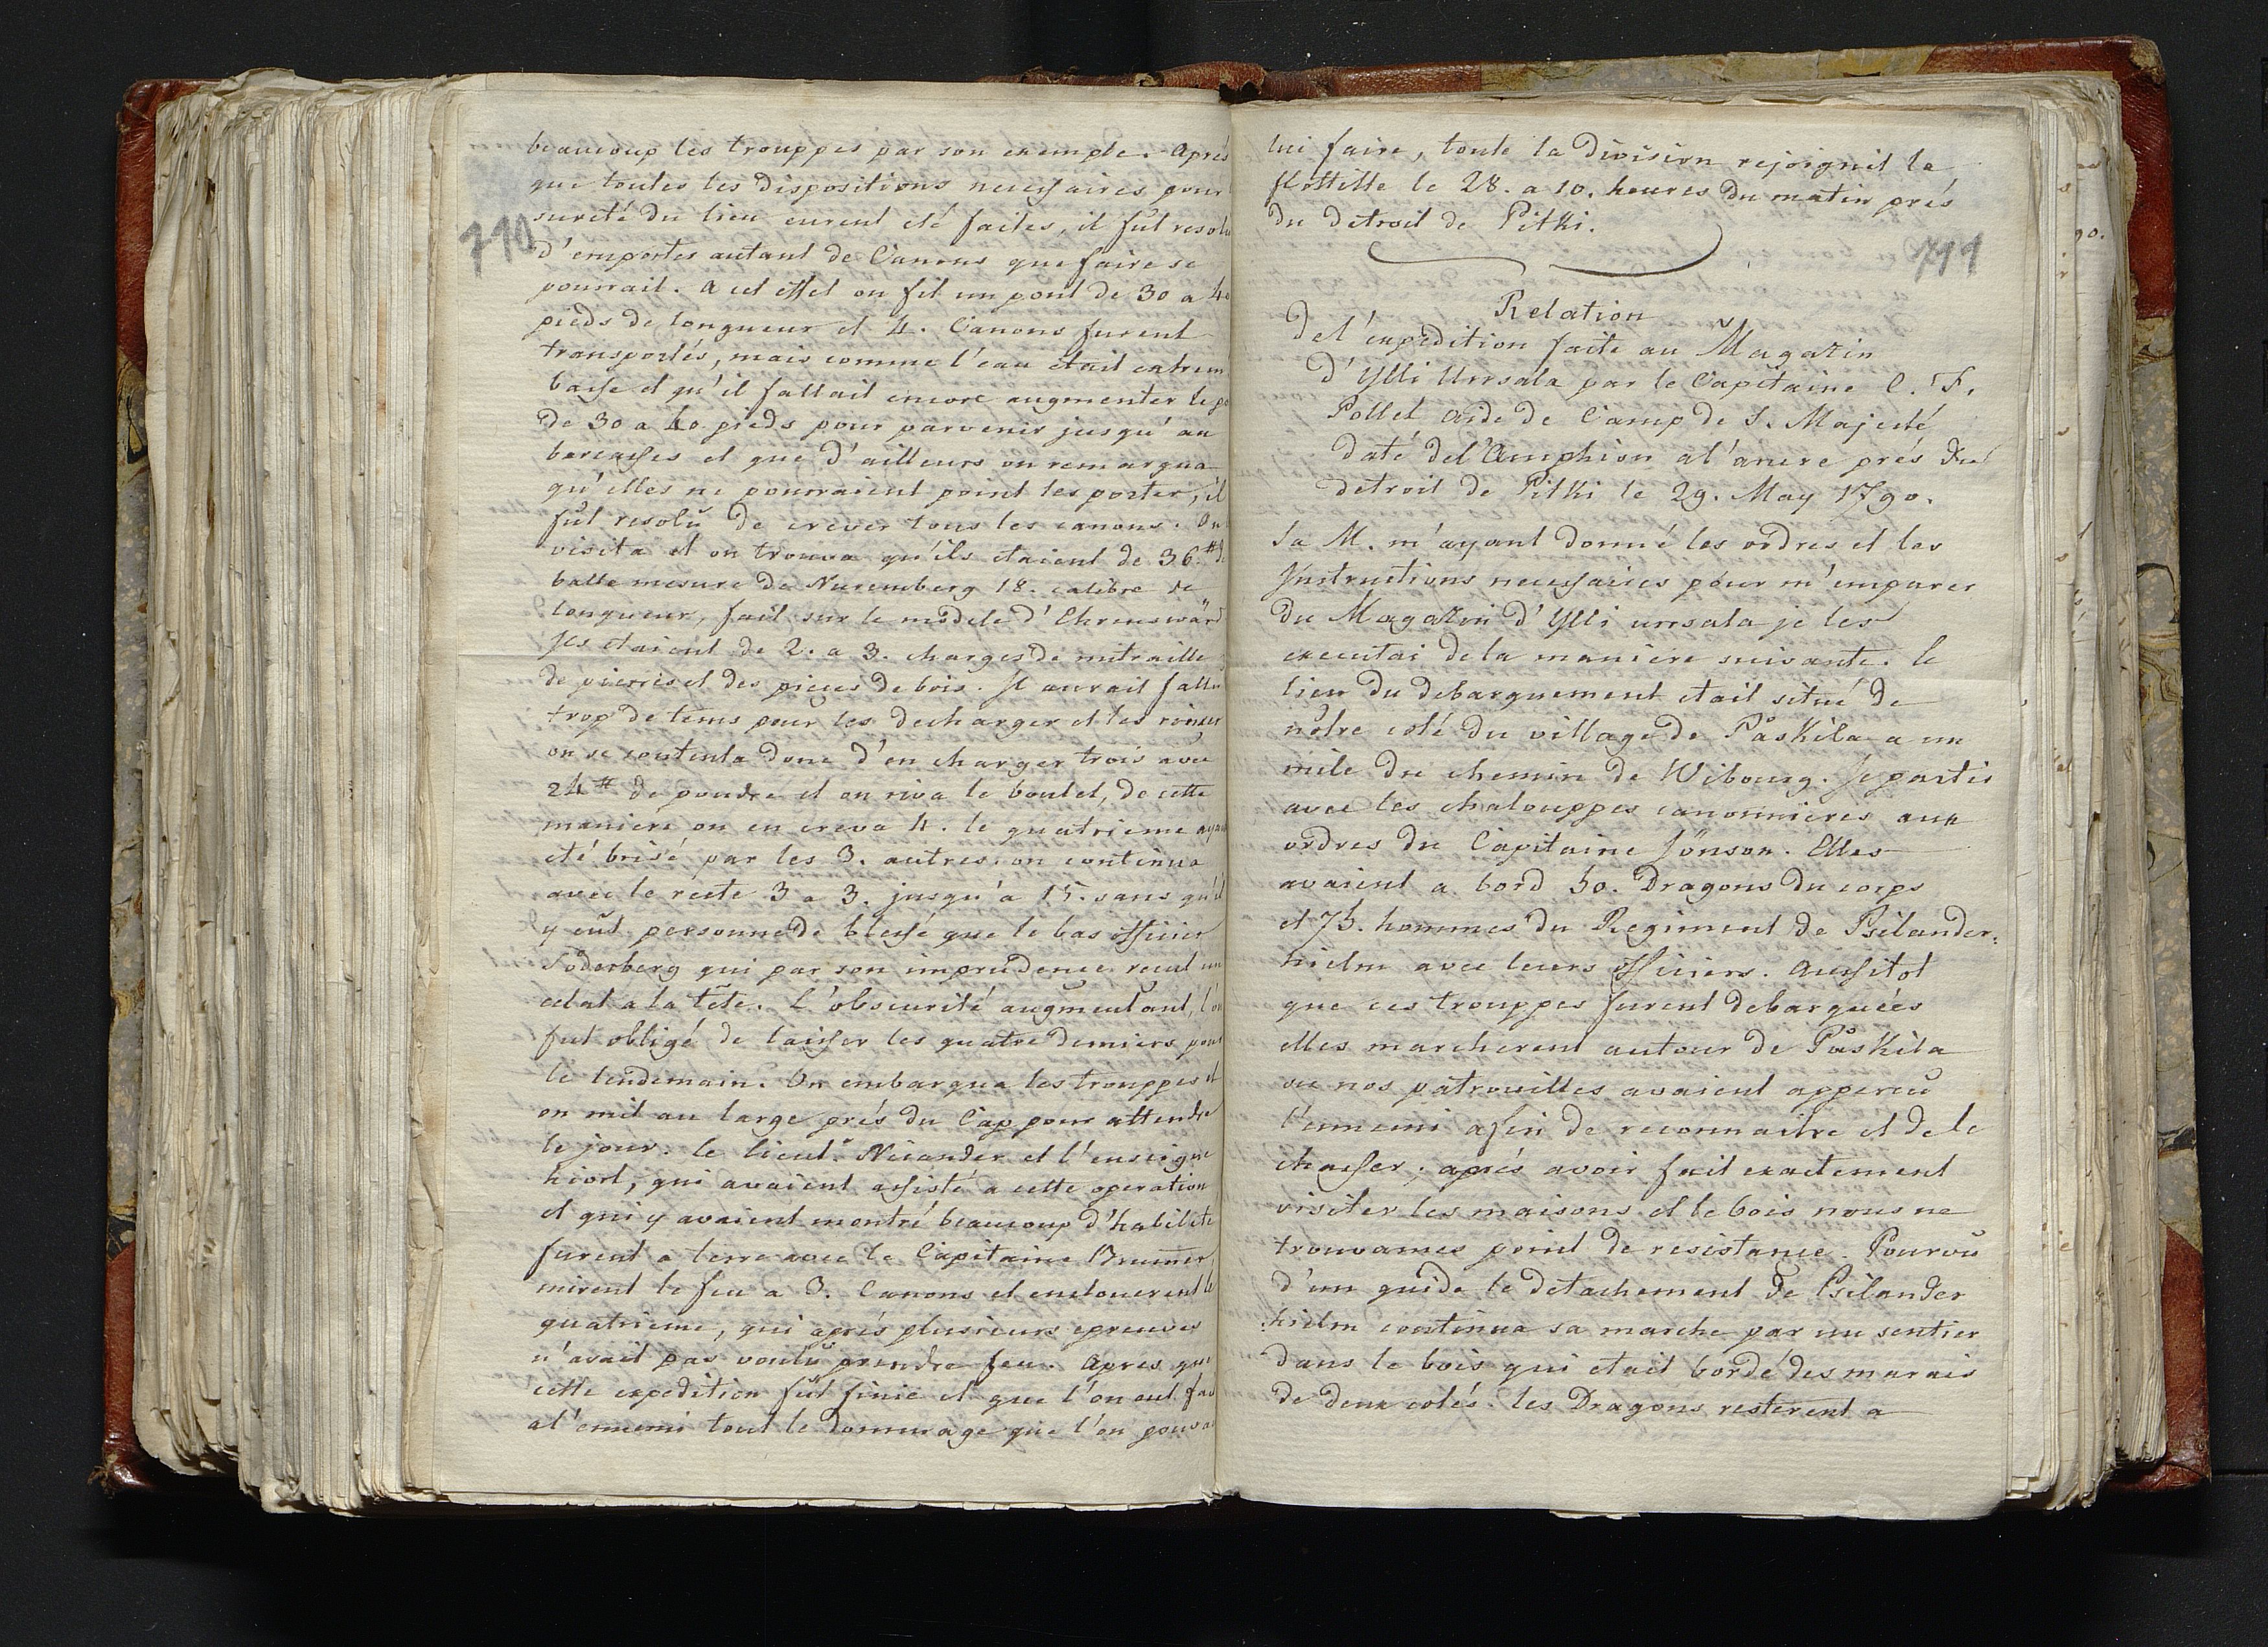 beaucoup les trouppes par son exemple. Après
que toutes les dispositions necessaires pour
sureté du lieu eurent eté faites, il fut resolu
710
d'emporter autant de Canons que faire se
pourrait. A cet effet on fit un pont de 30 a 40
pieds de longueur et 4. Canons furent
transportés, mais comme l'eau était extrem
basse et qu'il fallait encore augmenter le po
de 30 a 40 pieds pour parvenir jusqu'au
barcasses et que d'ailleurs on remarqua
qu'elles ne pourraient point les porter, il
fut resolu de crever tous les canons. On
visita et on trouva qu'ils etaient de 36 ₶ de
balle mesure de Nuremberg 18. calibre de
longueur, fait sur le modele d'Ehrenswärd
Jls etaient de 2. a 3. charges de mitraille
de pierres et des pieces de bois. Jl aurait fallu
trop de tems pour les decharger et les rincer
on se contenta donc d'en charger trois avec
24 ₶ de poudre et on riva le boulet, de cette
maniere on en creva 4. le quatrieme ayant
eté brisé par les 3. autres. on continua
avec le reste 3 a 3. jusqu'a 15. sans qu'il
y eut personne de blessé que le bas officier
Söderberg qui par son imprudence recut un
eclat a la tête. L'obscurité augmentant, l'on
fut obligé de laisser les quatre derniers pour
le lendemain. On embarqua les trouppes et
on mit au large prés du Cap pour attendre
le jour. le lieut. Nicander et l'enseigne
hiort, qui avaient assisté a cette operation
et qui y avaient montré beaucoup d'habileté
furent a terre avec le Capitaine Brumer,
mirent le feu a 3. Canons et enclouerent le
quatrieme, qui après plusieurs epreuves
n'avait pas voulu prendre feu. Apres que
cette expedition fut finie et que l'on eut fai
a l'ennemi tout le dommage que l'on pouvai
lui faire, toute la division rejoignit la
flottille le 28. a 10. heures du matin prés
du detroit de Pitki.
711
Relation
de l'expedition faite au Magazin
d'Ylli Urrsala par le Capitaine C. F.
Pollet Aide de Camp de S. Majesté
daté de l'Amphion a l'ancre prés du
detroit de Pitki le 29. May 1790.
Sa M. m'ayant donné les ordres et les
Jnstructions necessaires pour m'emparer
du Magazin d'Ylli urrsala je les
executai de la maniere suivante. le
lieu du debarquement etait situé de
nôtre coté du village de Påskila a un
mile du chemin de Wibourg. Je partis
avec les chalouppes canonnieres aux
ordres du Capitaine Jönson. Elles
avaient a bord 50. Dragons du corps
et 75. hommes du Regiment de Psilander=
hielm avec leurs officiers. Aussitot
que ces trouppes furent debarquées
elles marcherent autour de Påskila
ou nos patrouilles avaient apperçu
l'ennemi afin de reconnaitre et de le
chasser; aprés avoir fait exactement
visiter les maisons et le bois nous ne
trouvames point de resistance. Pourvu
d'un guide le detachement de Psilander
hielm continua sa marche par un sentier
dans le bois qui etait bordé des marais
de deux cotés. les Dragons resterent a